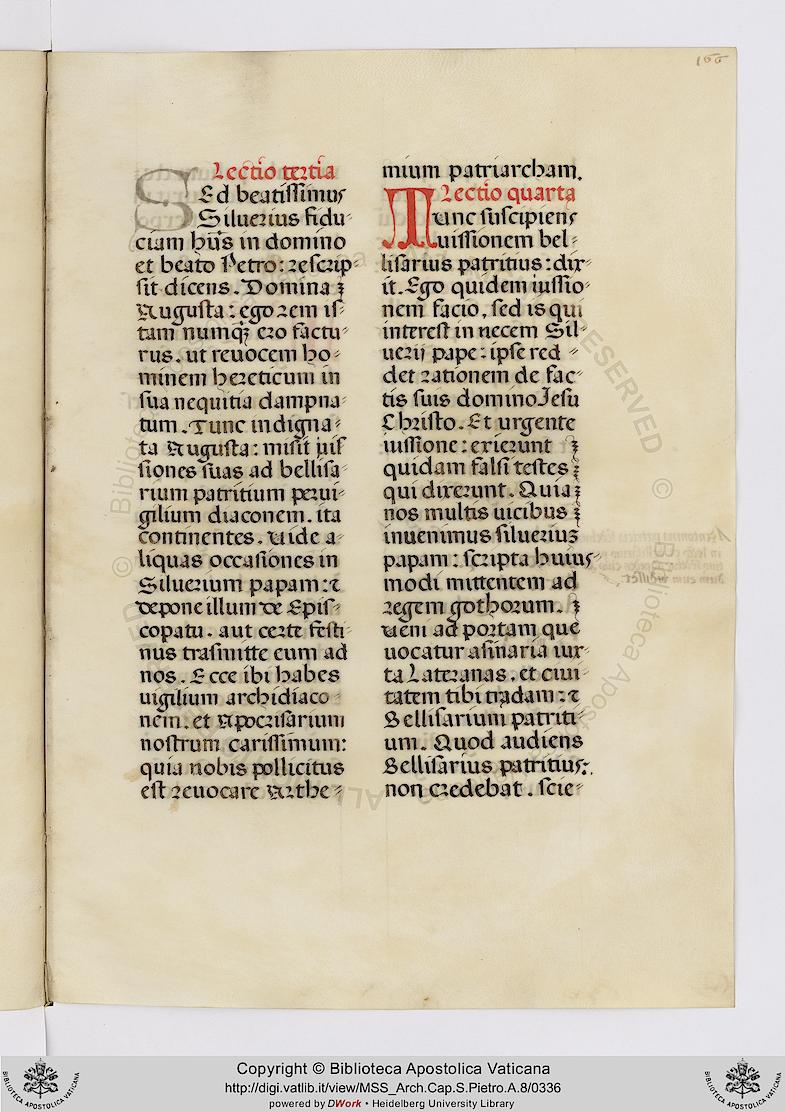 166
Lectio tertia
SEd beatissimus
Siluerius fidu⸗
ciam hñs in domino
et beato Petro: rescrip⸗
sit dicens. Domina ⁊
Augusta: ego rem is⸗
tam numqꝫ ero factu⸗
rus. ut reuocem ho⸗
minem hereticum in
sua nequitia dampna⸗
tum. Tunc indigna⸗
ta Augusta: misit iuis
siones suas ad bellisa⸗
rium patritium per ui⸗
gilium diaconem. ita
continentes. Vide a⸗
liquas occasiones in
Siluerium papam: ⁊
depone illum de Epis⸗
copatu. aut certe festi⸗
nus trasmitte eum ad
nos. Ecce ibi habes
uigilium archidiaco⸗
nem. et Apocrisarium
nostrum carissimum:
quia nobis pollicitus
est reuocare Anthe⸗
mium patriarcham.
Lectio quarta
Tunc suscipiens
iuissionem bel⸗
lisarius patritius: dix⸗
it. Ego quidem iussio⸗
nem facio, sed is qui
interest in necem Sil⸗
uerij pape: ipse red⸗
det rationem de fac⸗
tis suis domino Jesu
Christo. Et urgente
iussione: exierunt
quidam falsi testes
qui dixerunt. Quia
nos multis uicibus
inuenimus silueriuꝫ
papam: scripta huius⸗
modi mittentem ad
regem gothorum.
ueni ad portam que
uocatur asinaria iux⸗
ta Lateranas. et ciui⸗
tatem tibi tradam: ⁊
Bellisarium patriti⸗
um. Quod audiens
Bellisarius patritius:
non credebat. scie⸗
Copyright © Biblioteca Apostolica Vaticana
http://digi.vatlib.it/view/MSS_Arch.Cap.S.Pietro.A.8/0336
powered by DWork • Heidelberg University Library